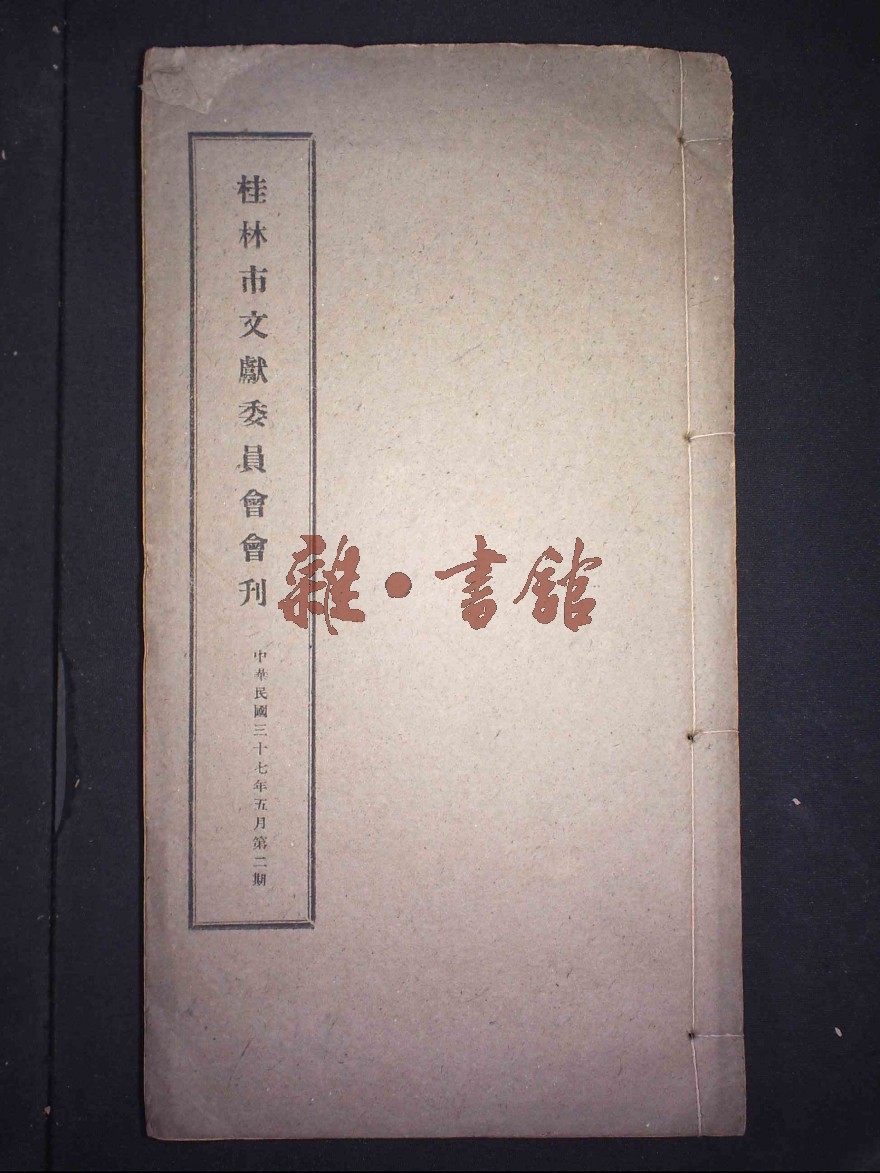 桂林市文獻委員會會刊
中華民國三十七年五月第二期
雜·書館